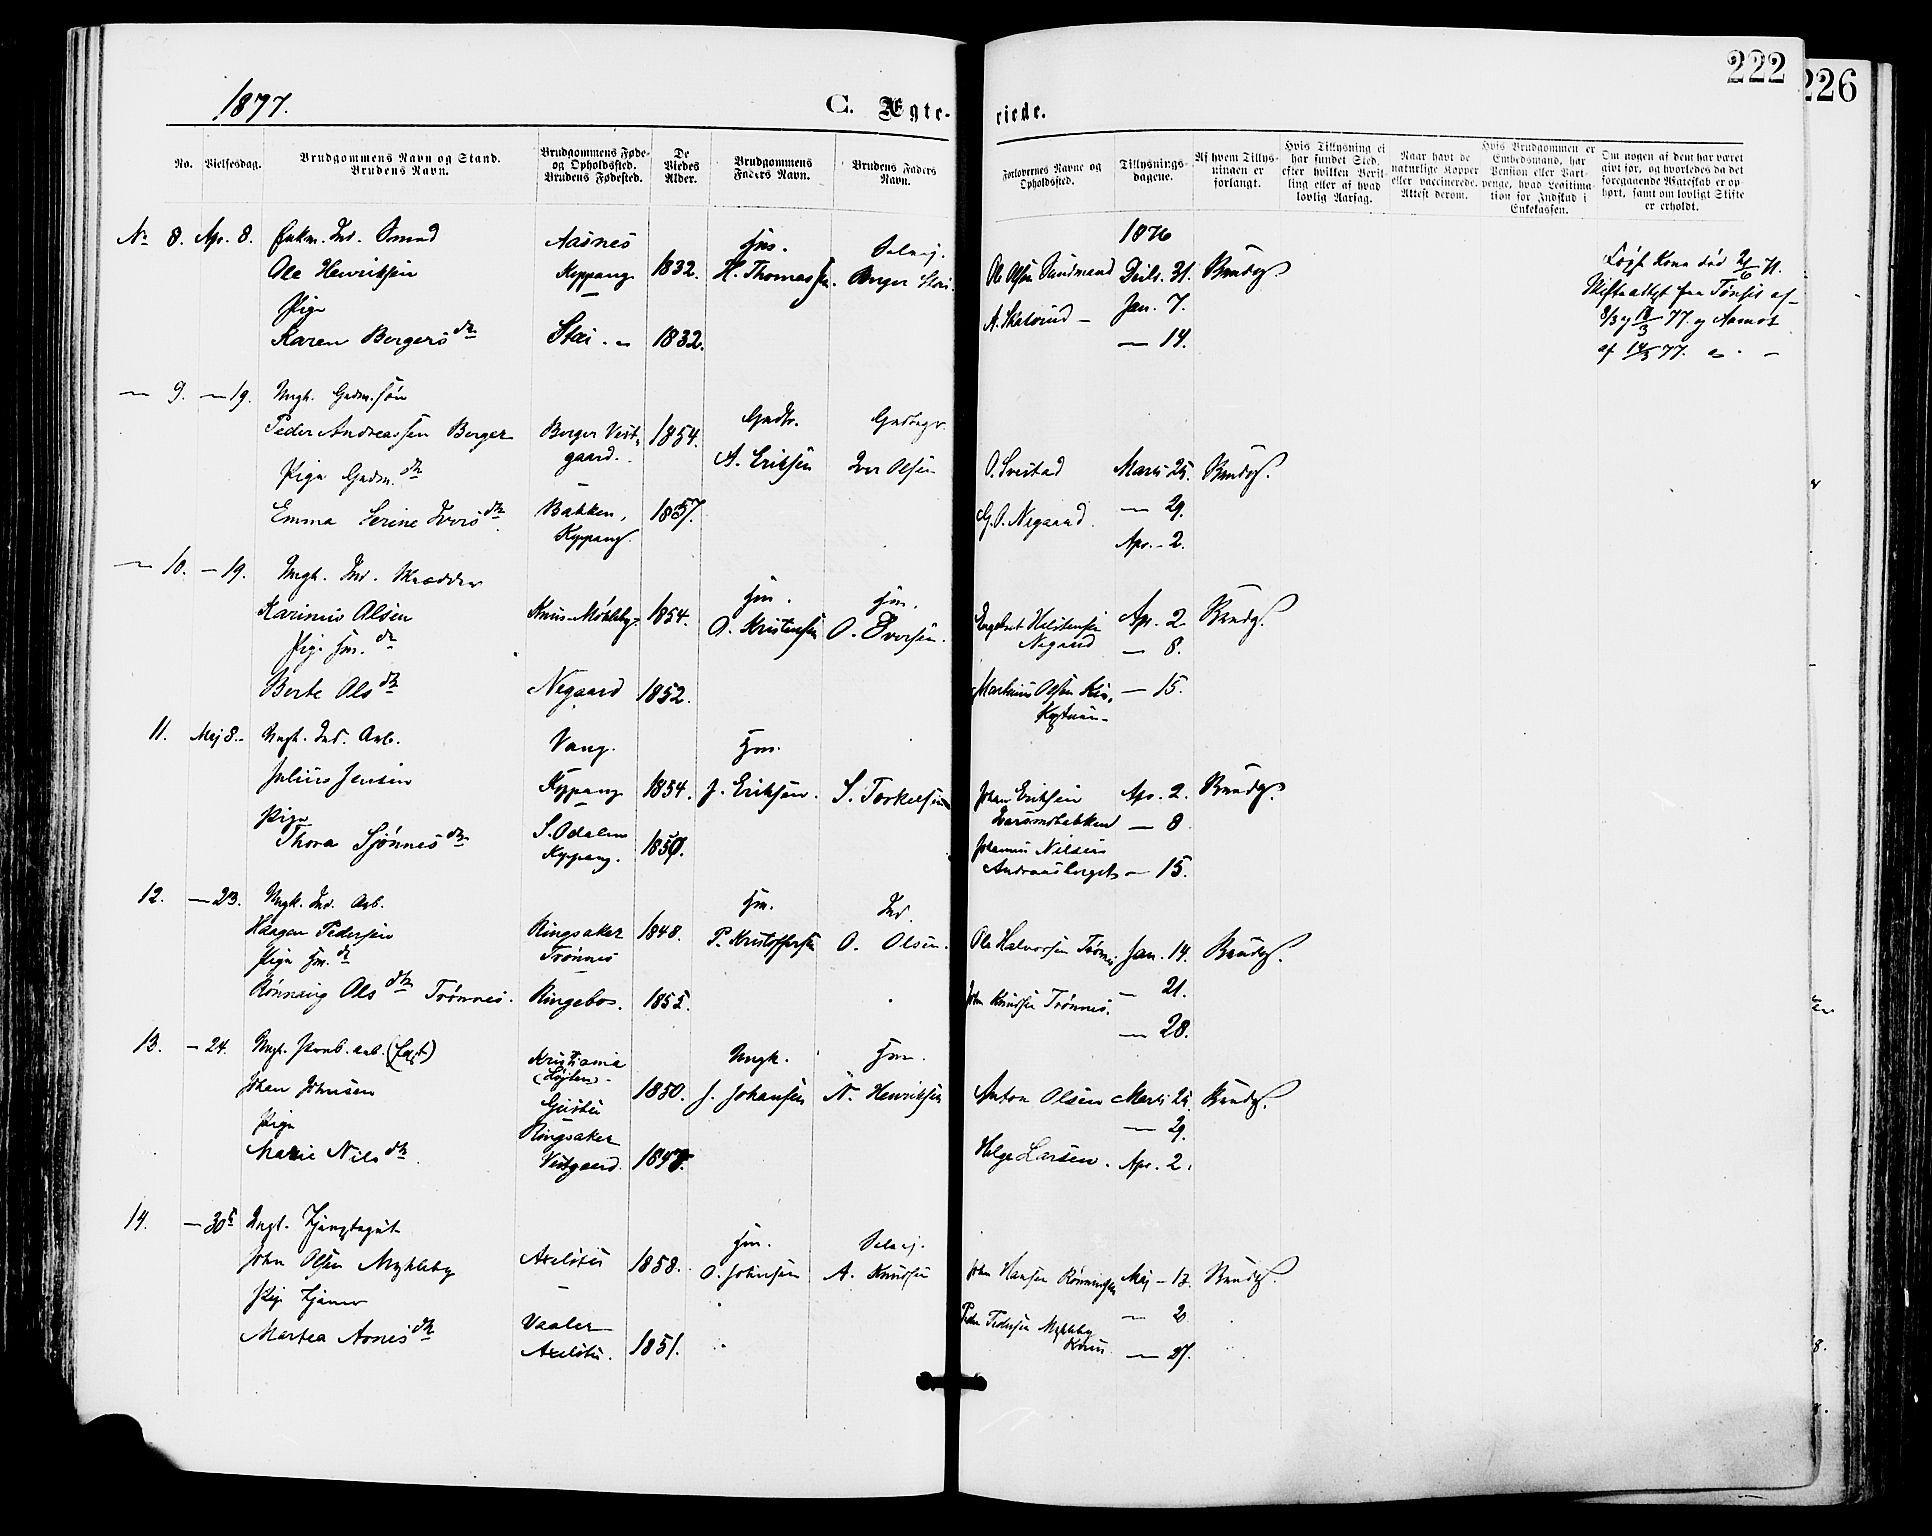 222
226
1877.
C. Ægte-
viede.
No.
Vielsesdag.
Brudgommens Navn og Stand.
Brudens Navn.
Brudgommens Føde-
og Opholdssted.
Brudens Fødested.
De
Viedes
Alder.
Brudgommens
Faders Navn.
Brudens Faders
Navn.
Forlovernes Navne og
Opholdssted.
Tillysnings-
dagene.
Af hvem Tillys-
ningen er
forlangt.
Hvis Tillysning ei
har fundet Sted,
efter hvilken Bevil-
ling eller af hvad
lovlig Aarsag.
Naar havt de
naturlige Kopper
eller vaccinerede.
Attest derom.
Hvis Brudgommen er
Embedsmand, har
Pension eller Vart-
penge, hvad Legitima-
tion for Indskud i
Enkekassen.
Om nogen af dem har været
givt før, og hvorledes da det
foregaaende Ægteskab er op-
hørt, samt om lovligt Skifte
er erholdt.
No 8. Apr. 8. Enkem. Ind. Smed
Ole Henriksen
Pige
Karen Bergersdtr
Aasnes
Koppang
Stai
1832.
1832.
Hm.
H. Thomassen
Selvej.
Berger Stai
Ole Olsen Sandmand
A. Skatvind
1876
Decbr. 31.
Jan. 7.
— 14.
Brudg.
Kone død 21/6 71.
af
8/3 og 12/3 77. og Aamot
af 14/3 77.
— 9. — 19. Ungk. Gadm. søn
Peder Andreassen Berger
Pige Gadm. dtr
Emma Serine Iversdtr
Berger Vest-
gaard.
Bakken,
Koppang.
1854.
1857.
Gaadbr.
A. Eriksen
Iver Olsen
O. Svestad
G. O. Negaard
Marts 25.
— 29.
Apr. 2.
Brudg.
— 10. — 19. Ungk. Ind. Skrædder
Karinus Olsen
Pige Hm. dtr
Berte Olsdtr
Negaard
1854.
1852.
Hm.
O. Kristensen
Hm.
O. Iversen.
Engebret
Negaard
Martinius Olsen
Apr. 2
— 8.
— 15.
Brudg.
11. Maj 8. Ungk. Ind. Arb.
Julius Jensen
Pige
Thora Sjønnesdtr
Vang.
Koppang
S. Odalen
Koppang.
1854.
1850.
Hm.
J. Eriksen.
S. Torkelsen
Johan Eriksen
Johannes Nilsen
Andreasberget
Apr. 2.
— 8
— 15.
Brudg.
12. — 23. Ungk. Ind. Arb.
Haagen Pedersen
Pige Hm. dtr
Rønnaug Olsdtr Trønnes.
Ringsaker
Trønnes
Ringebo.
1848.
1855.
Hm.
P. Kristoffersen
Ind.
O. Olsen.
Ole Halvorsen Trønnes
John Knudsen Trønnes.
Jan. 14.
— 21.
— 28.
Brudg.
13. — 24. Ungk. Jernb. arb.
Johan Johnsen
Pige
Marie Nilsdtr
Kristiania
(Løiten).
Ringsaker
Vestgaard.
1850.
Ungk.
J. Johansen
Hm.
N. Henriksen
Anton Olsen
Helge Larsen.
Marts 25.
— 29.
Apr. 2.
Brudg.
14. — 30 Ungk. Tjenestegut
John Olsen Mykleby
Pige Tjener
Martea Arnesdtr
Vaaler
1858.
1851.
Hm.
O. Johnsen
Selvej.
A. Knudsen
John Hansen Rønningen
Peder Pedersen Mykleby
Maj — 13.
— 20
— 27.
Brudg.